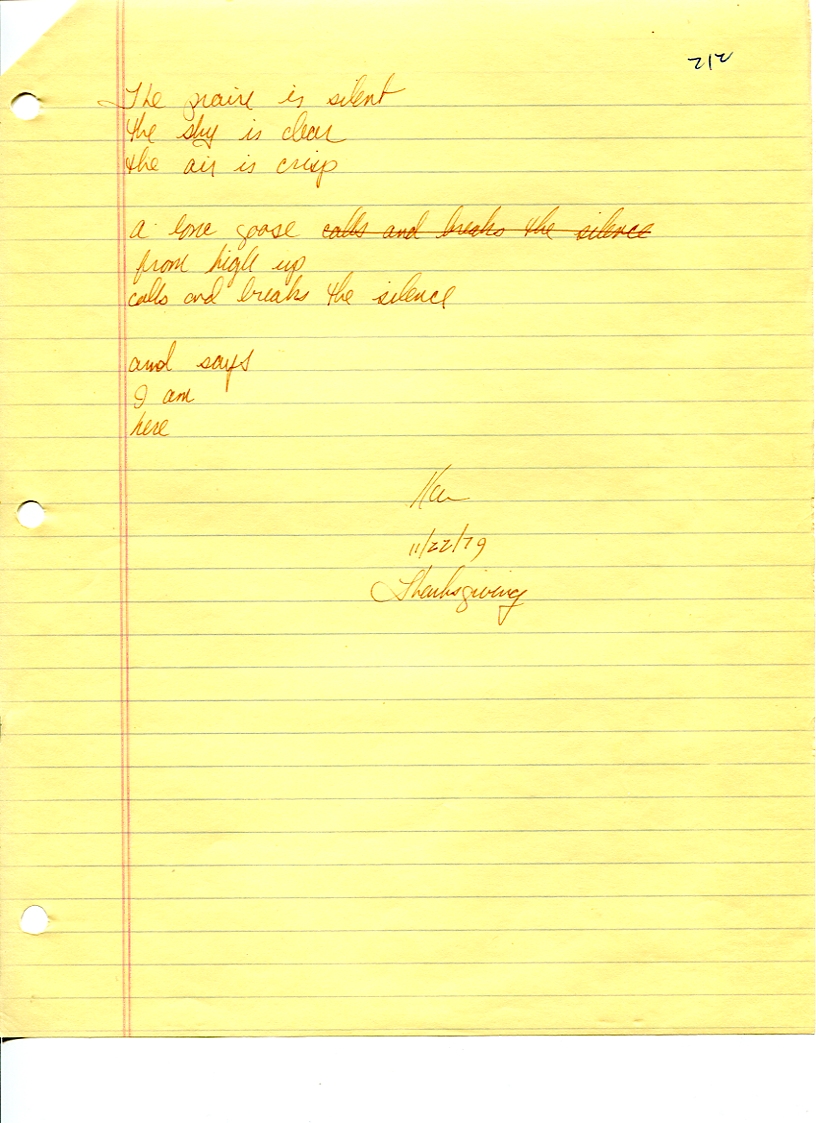 212
The praire is silent
the sky is clear
the air is crisp
a lone goose calls and breaks the silence
from high up
calls and breaks the silence
and says
I am
here
11/22/79
Thanksgiving